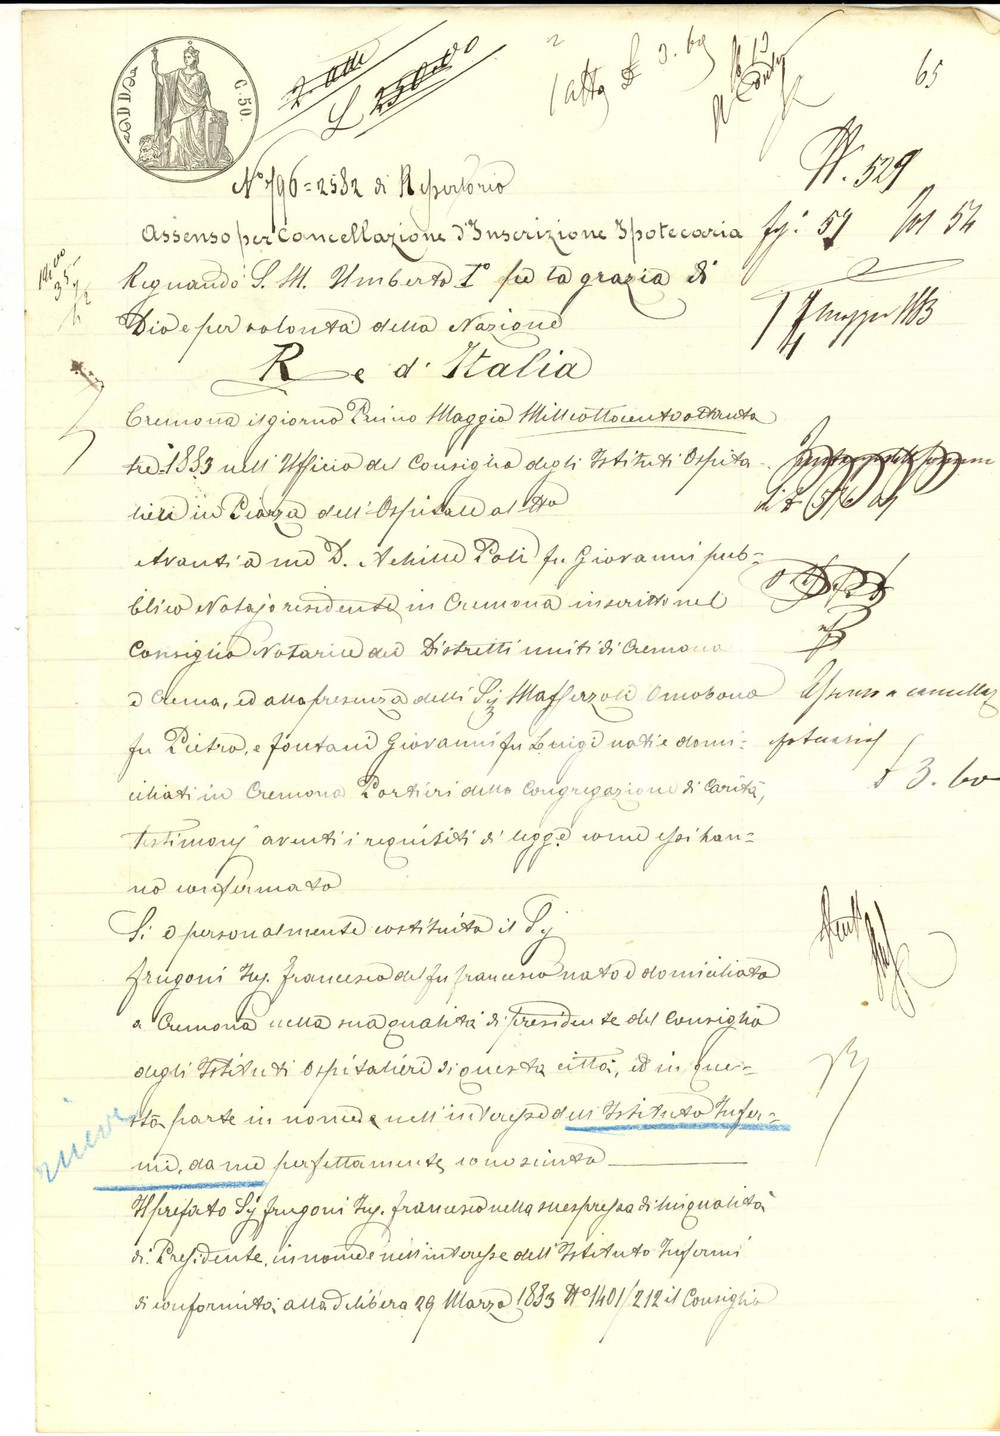 65
C. 50.
L 250.00
N. 529
N.° 796=2582 di Repertorio
Assenso per Cancellazione d'Inscrizione Ipotecaria
fg. 57 Vol 54
Regnando S. M. Umberto I° per la grazia di
Dio e per volontà della Nazione
Maggio 1883
Re d'Italia
Cremona il giorno Primo Maggio Milleottocentoottanta
tre 1883 nell'Ufficio del Consiglio degli Istituti Ospita
lieri in Piazza dell'Ospitale al N°
Avanti a me D. Achille Poli fu Giovanni pub=
blico Notajo residente in Cremona inscritto nel
Consiglio Notarile dei Distretti uniti di Cremona
e Crema, ed alla presenza delli Sig. Mafferzoli Omobono
fu Pietro, e Fontani Giovanni fu Luigi nati e domi=
ciliati in Cremona Portieri della Congregazione di Carità,
£ 3. 60
testimonj aventi i requisiti di legge come essi han=
no confermato
Si è personalmente costituito il Sig.
Frugoni Ing. Francesco del fu Francesco nato e domiciliato
a Cremona nella sua qualità di Presidente del Consiglio
degli Istituti Ospitalieri di questa città, ed in que=
sta parte in nome e nell'interesse dell'Istituto Infer=
mi, da me perfettamente conosciuto
Il prefato Sig. Frugoni Ing. Francesco nella suespressa di lui qualità
di Presidente, in nome e nell'interesse dell'Istituto Infermi
di conformità alla delibera 29 Marzo 1883 N° 1401/212 il Consiglio